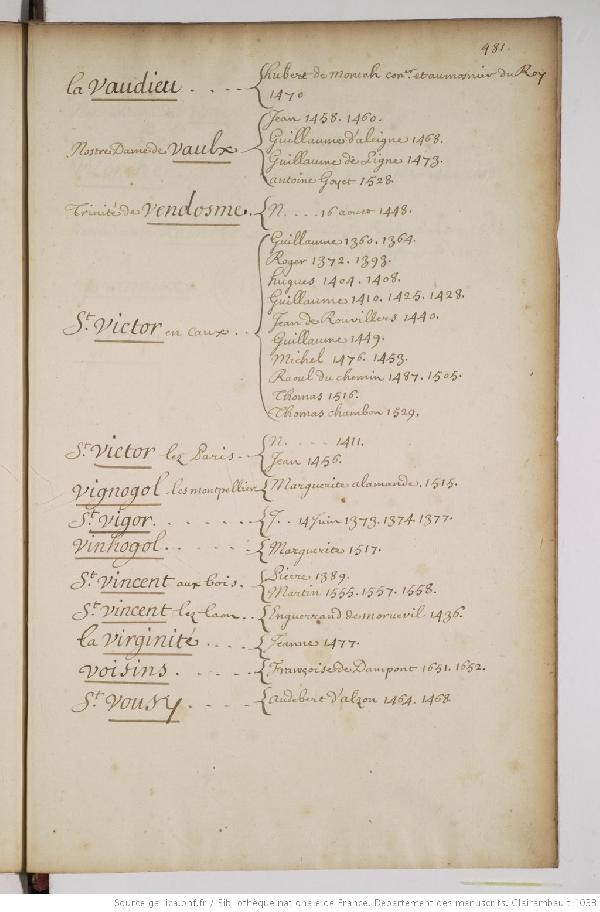 481.
la Vaudieu . . . . { hubert de montah con.er et aumosnier du Roy
1470
Nostre Dame de Vaulx { Jean 1458. 1460.
Guillaume d'aleigne 1468.
Guillaume de Ligne 1473.
antoine Goyet 1528.
Trinité de Vendosme. { N. . . . 16 aoust 1448.
St. Victor en caux . . { Guillaume 1360. 1364.
Roger 1372. 1393.
hugues 1404. 1408.
Guillaume 1410. 1425. 1428.
Jean de Rouvillers 1440.
Guillaume 1449.
Michel 1476. 1453.
Raoul du chemin 1487. 1505.
Thomas 1516.
Thomas chambon 1529.
St. Victor lez Paris . { N. . . . . 1411.
Jean 1456.
Vignogol les montpellier { Marguerite alamande. 1515.
St. Vigor. . . . . . . { J. . 14 Juin 1373. 1374. 1377.
Vinhogol. . . . . . { Marguerite 1517.
St. Vincent aux bois . { Pierre 1389.
Martin 1555. 1557. 1558.
St. Vincent lez lan . . { Enguerrand de morcevil 1436.
la Virginité . . . . { Jeanne 1477.
Voisins . . . . . { Françoise de Dampont 1651. 1652.
St. Vousy . . . . { Audebert d'alzon 1464. 1468.
Source gallica.bnf.fr / Bibliothèque nationale de France. Département des manuscrits. Clairambault 1038